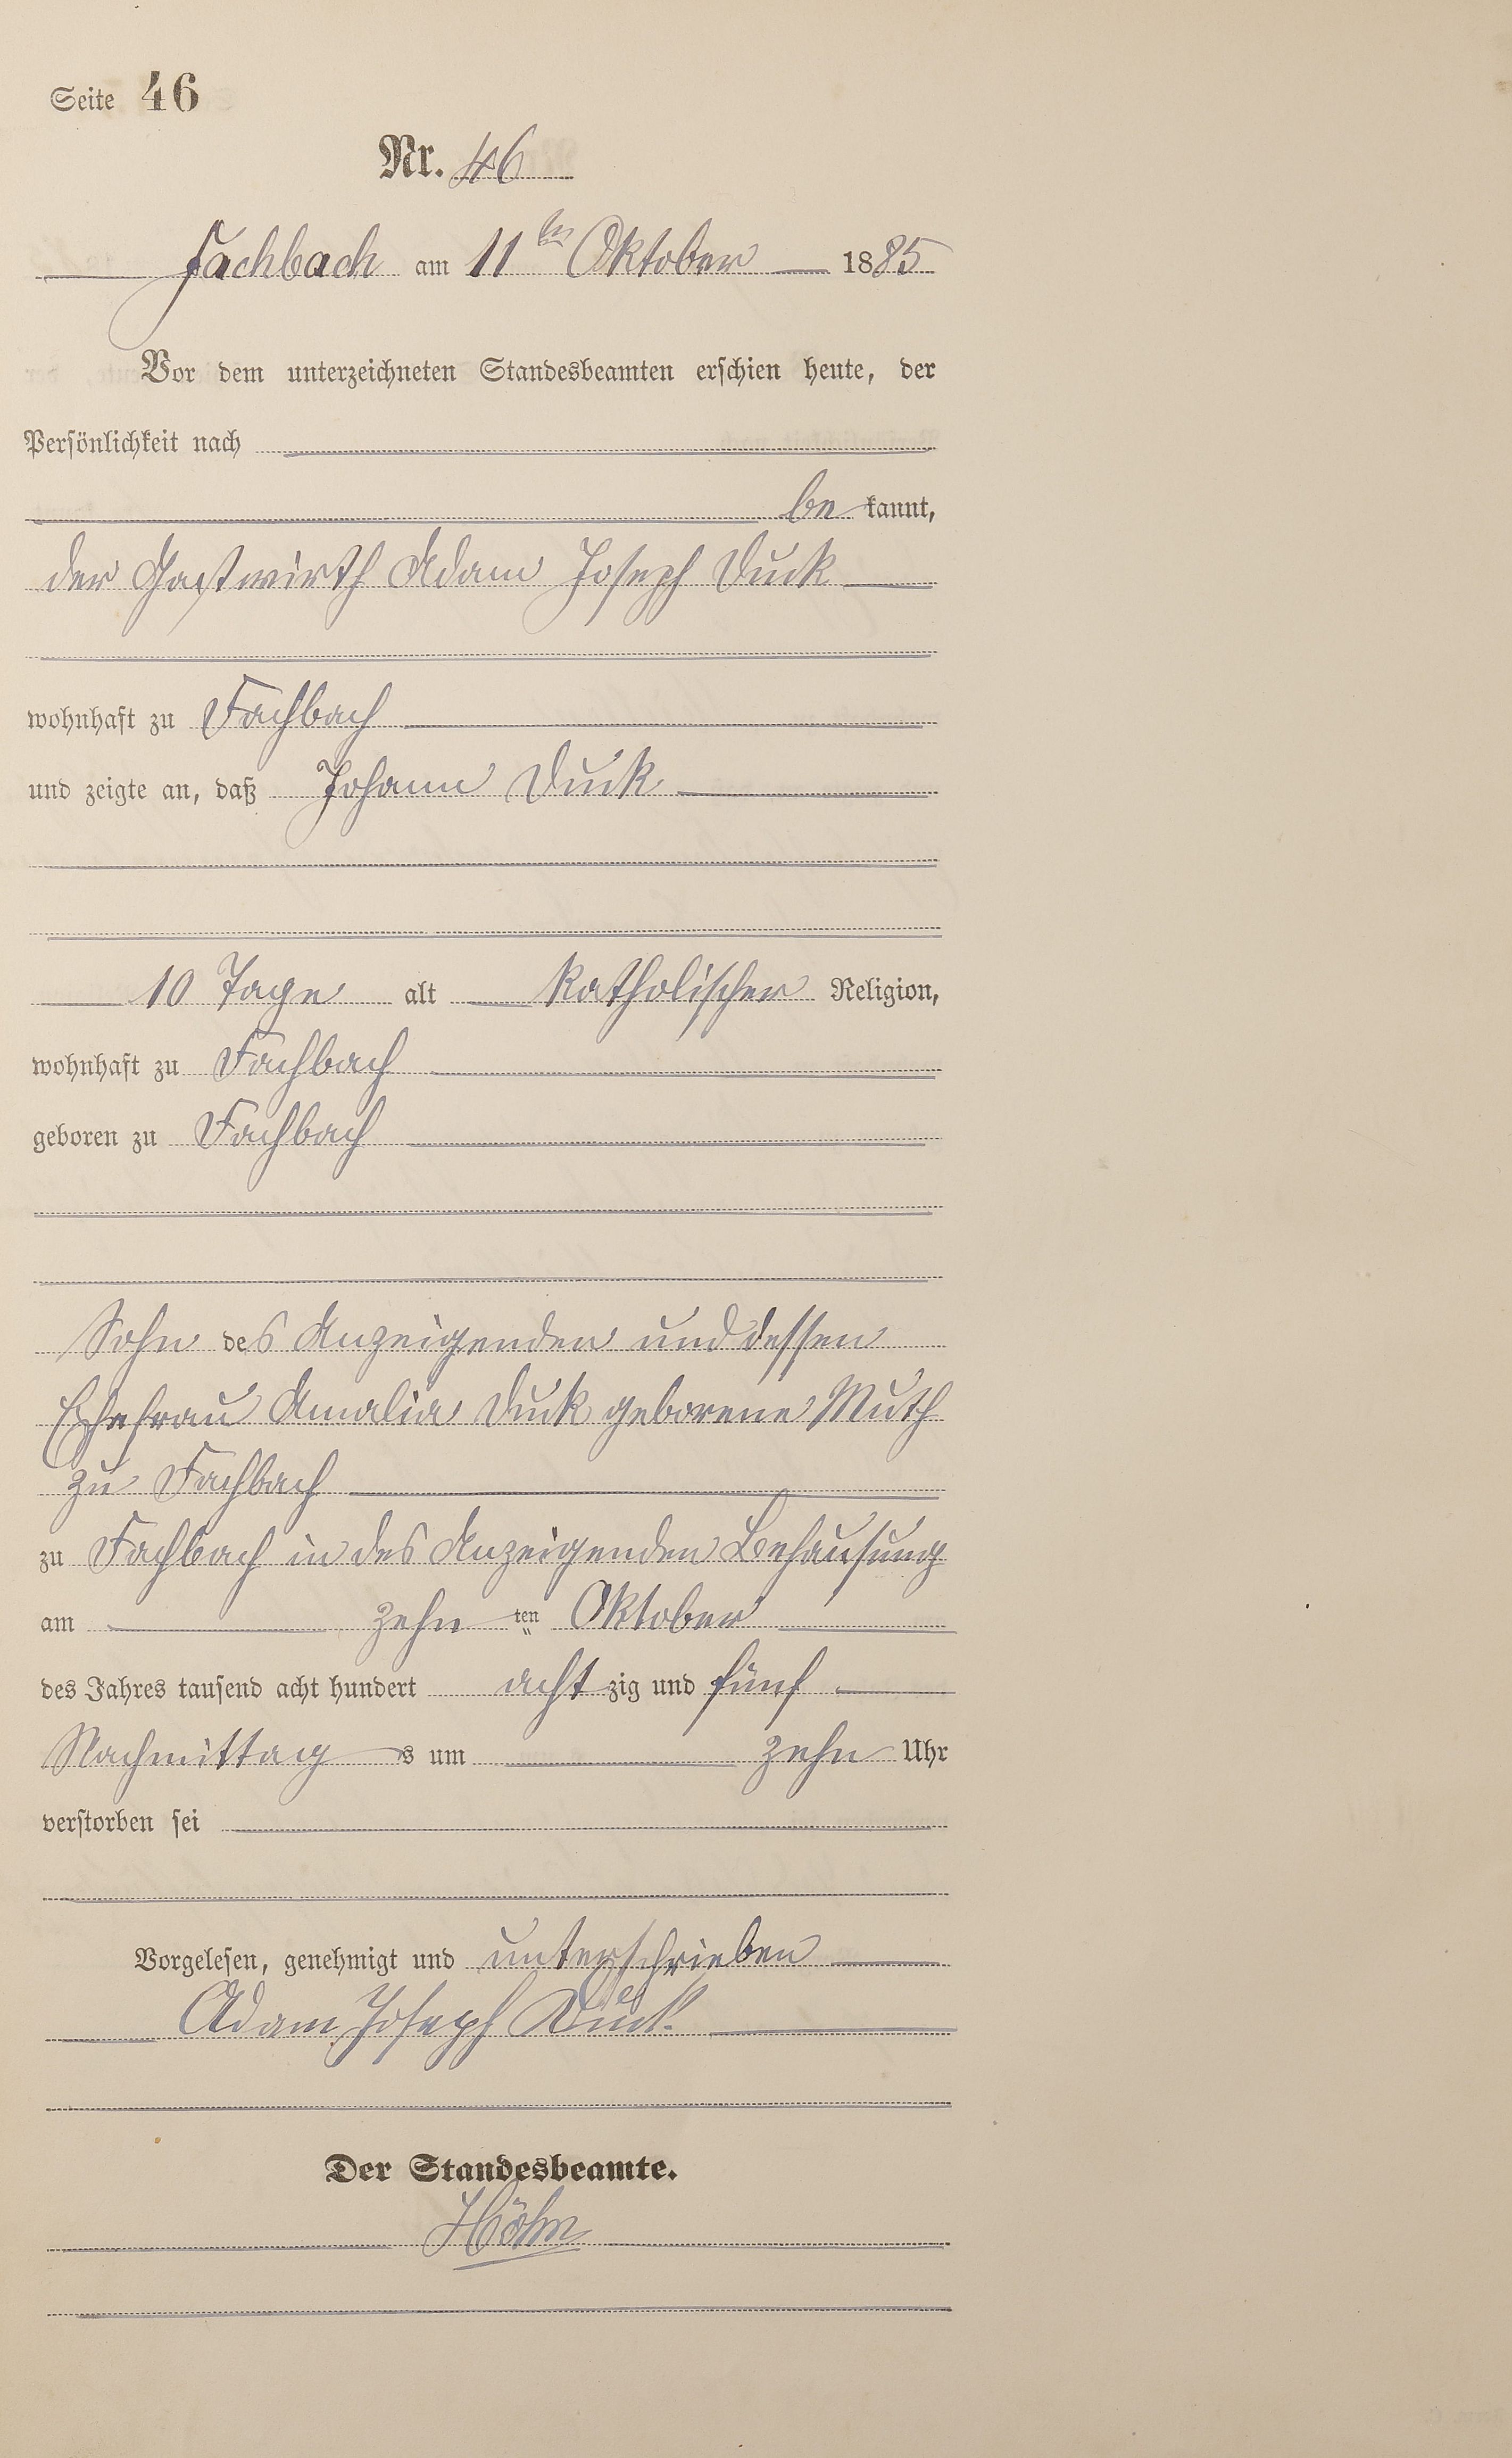 Seite 46
Nr. 46
Fachbach am 11ten Oktober 1885
Vor dem unterzeichneten Standesbeamten erschien heute, der
Persönlichkeit nach
be kannt,
der Gastwirth Adam Joseph Duck
wohnhaft zu Fachbach
und zeigte an, daß Johann Duck
10 Tage alt katholischer Religion,
wohnhaft zu Fachbach
geboren zu Fachbach
Sohn des Anzeigenden und dessen
Ehefrau Amalia Duck geborene Muth
zu Fachbach
zu Fachbach in des Anzeigenden Behausung
am zehn ten Oktober
des Jahres tausend acht hundert acht zig und fünf
Nachmittag s um zehn Uhr
verstorben sei
Vorgelesen, genehmigt und unterschrieben
Adam Joseph Duck
Der Standesbeamte.
Höhn